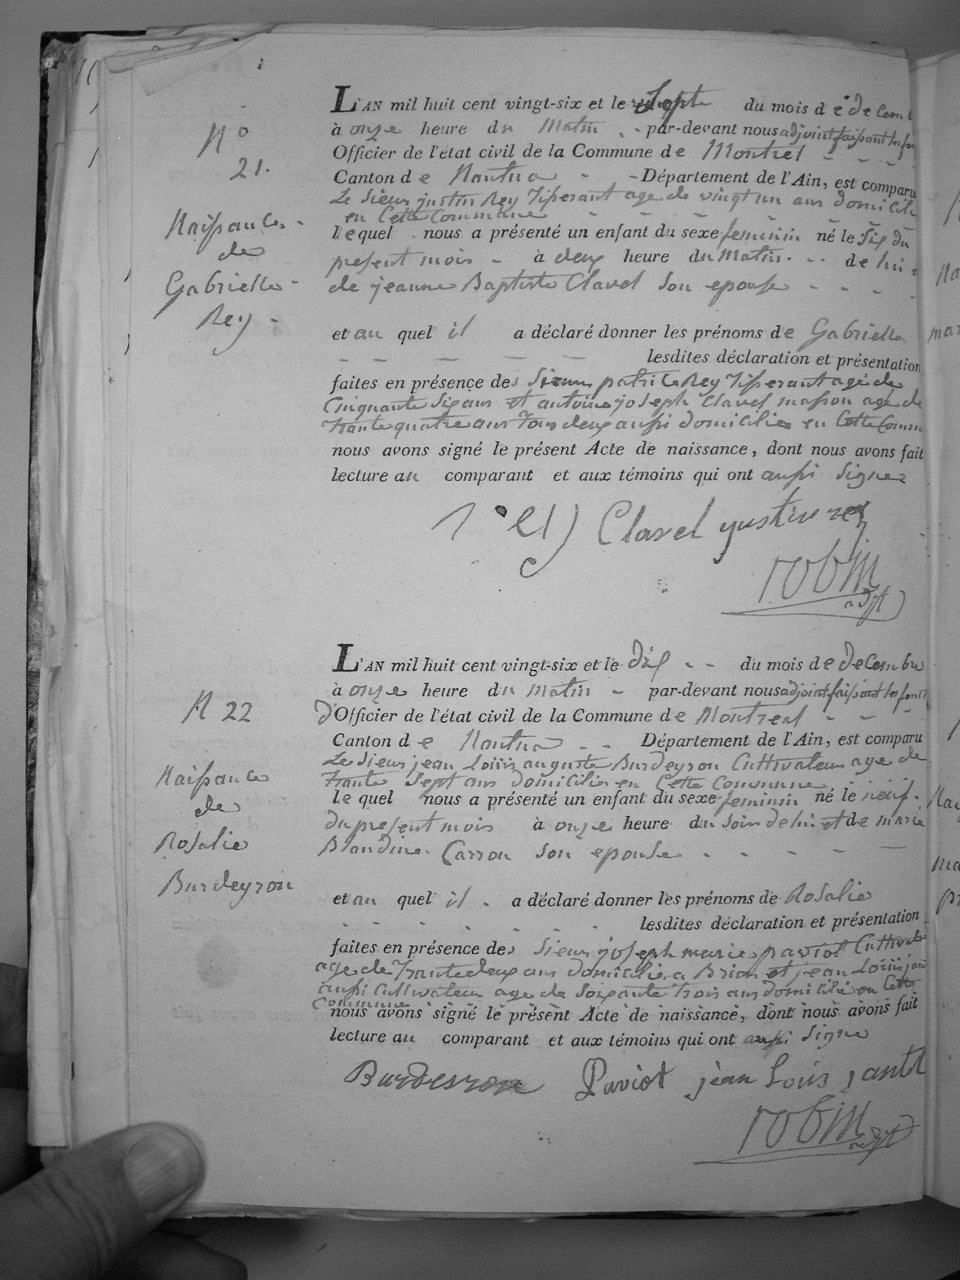 N° 21.
Naissance
de
Gabrielle
Rey
L'AN mil huit cent vingt-six et le Sept du mois de decem
à onze heure du Matin par-devant nous adjoint faisant les fon
Officier de l'état civil de la Commune de Montreal
Canton de Nantua Département de l'Ain, est comparu
Le sieur justin Rey Tisserant age de vingt un ans domicili
en Cette Commune
lequel nous a présenté un enfant du sexe feminin né le six du
present mois à deux heure du Matin de lui
de jeanne Baptiste Clavel son epouse
et au quel il a déclaré donner les prénoms de Gabrielle
lesdites déclaration et présentation
faites en présence des Sieurs patrice Rey Tisserant agé de
Cinquante six ans et antoine joseph Clavel masson age de
trante quatre ans tous deux aussi domicilies en Cette Comm
nous avons signé le présent Acte de naissance, dont nous avons fait
lecture au comparant et aux témoins qui ont aussi signe
rey Clavel justin rey
robin
adjt
N 22
Naissance
de
Rosalie
Burdeyron
L'AN mil huit cent vingt-six et le dix du mois de decembre
à onze heure du matin par-devant nous adjoint faisant les fonct
d'Officier de l'état civil de la Commune de Montreal
Canton de Nantua Département de l'Ain, est comparu
Le sieur jean Louis auguste Burdeyron Cultivateur age de
trante sept ans domicilié en Cette Commune
le quel nous a présenté un enfant du sexe feminin né le neuf
du present mois à onze heure du soir de lui et de marie
Blandine Carron son epouse
et au quel il a déclaré donner les prénoms de Rosalie
lesdites déclaration et présentation
faites en présence des Sieurs joseph marie paviot Cultivate
age de trante deux ans domicilié a Brion et jean Louis
aussi Cultivateur age de soixante trois ans domicilié en Cette
Commune
nous avons signé le présent Acte de naissance, dont nous avons fait
lecture au comparant et aux témoins qui ont aussi signe
Burdeyron Paviot jean Louis
robin
adjt